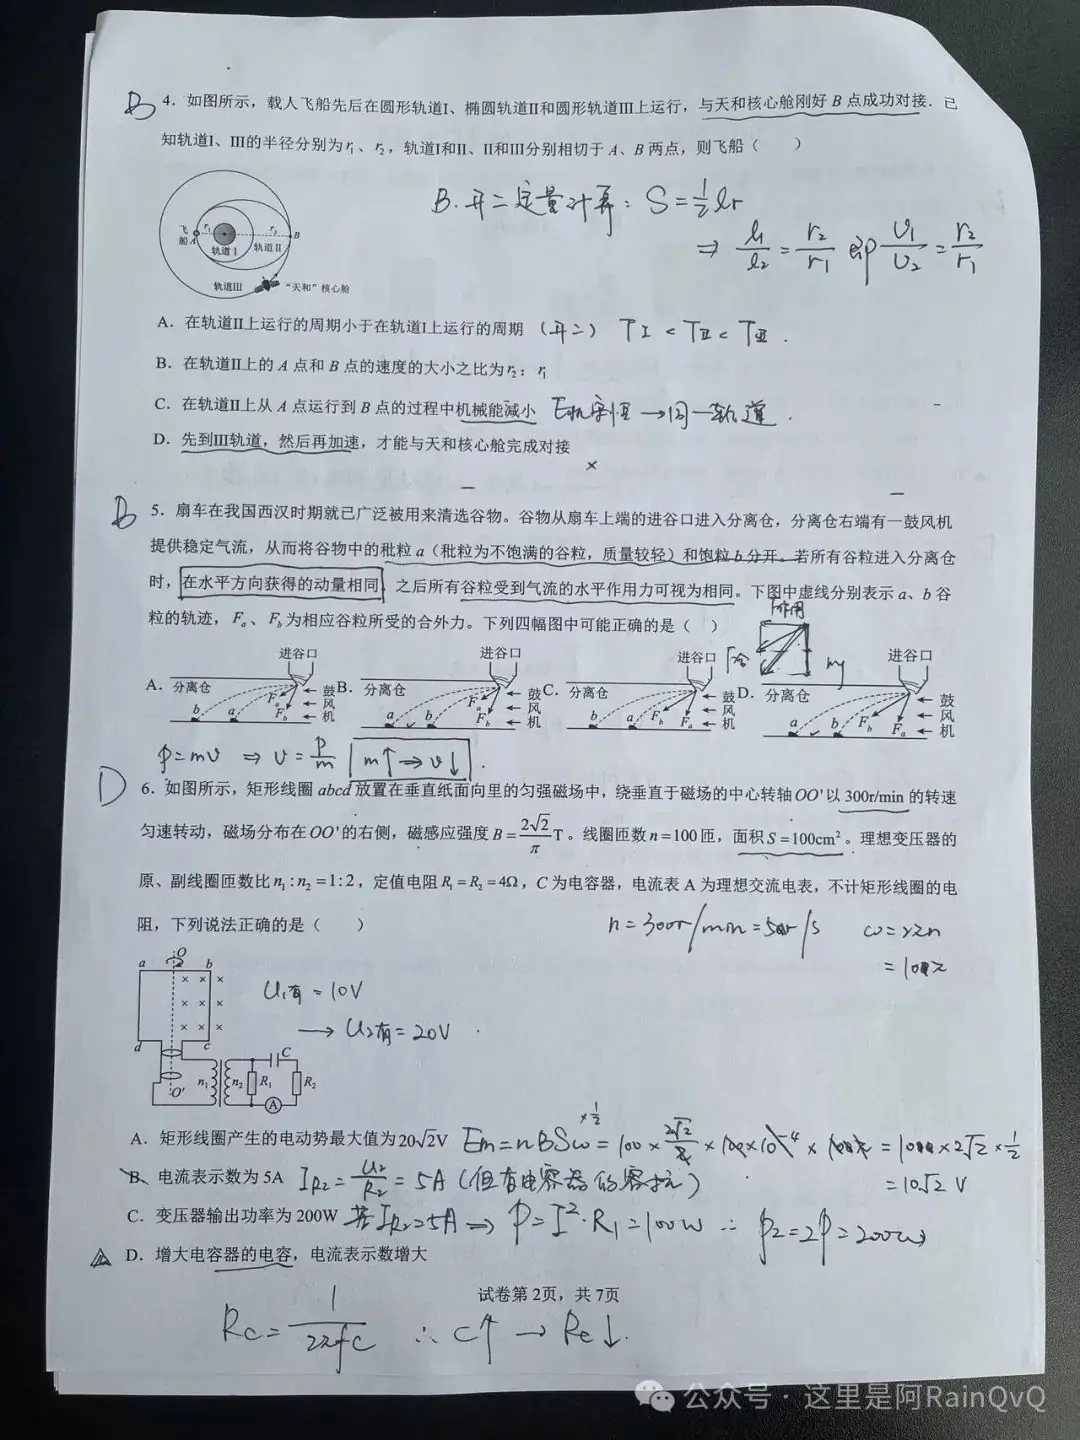 B 4．如图所示，载人飞船先后在圆形轨道Ⅰ、椭圆轨道Ⅱ和圆形轨道Ⅲ上运行，与天和核心舱刚好B点成功对接．已
知轨道Ⅰ、Ⅲ的半径分别为r₁、r₂，轨道Ⅰ和Ⅱ、Ⅱ和Ⅲ分别相切于A、B两点，则飞船（　　）
B.开二定量计算：S=½lr
⇒ l₁/l₂=r₂/r₁ 即 v₁/v₂=r₂/r₁
飞船A r₁ r₂ B
轨道Ⅰ 轨道Ⅱ
轨道Ⅲ “天和”核心舱
A．在轨道Ⅱ上运行的周期小于在轨道Ⅰ上运行的周期（开二）TⅠ<TⅡ<TⅢ.
B．在轨道Ⅱ上的A点和B点的速度的大小之比为r₂：r₁
C．在轨道Ⅱ上从A点运行到B点的过程中机械能减小 E机守恒→同一轨道.
D．先到Ⅲ轨道，然后再加速，才能与天和核心舱完成对接
×
B 5．扇车在我国西汉时期就已广泛被用来清选谷物。谷物从扇车上端的进谷口进入分离仓，分离仓右端有一鼓风机
提供稳定气流，从而将谷物中的秕粒a（秕粒为不饱满的谷粒，质量较轻）和饱粒b分开。若所有谷粒进入分离仓
时，在水平方向获得的动量相同，之后所有谷粒受到气流的水平作用力可视为相同。下图中虚线分别表示a、b谷
粒的轨迹，Fa、Fb为相应谷粒所受的合外力。下列四幅图中可能正确的是（　）
F作用
F合 mg
A．分离仓 进谷口 b a Fa Fb 鼓风机
B．分离仓 进谷口 a b Fa Fb 鼓风机
C．分离仓 进谷口 b a Fb Fa 鼓风机
D．分离仓 进谷口 a b Fb Fa 鼓风机
p=mv ⇒ v=p/m m↑→v↓.
D 6．如图所示，矩形线圈abcd放置在垂直纸面向里的匀强磁场中，绕垂直于磁场的中心转轴OO'以300r/min的转速
匀速转动，磁场分布在OO'的右侧，磁感应强度B=2√2/π T。线圈匝数n=100匝，面积S=100cm²。理想变压器的
原、副线圈匝数比n₁:n₂=1:2，定值电阻R₁=R₂=4Ω，C为电容器，电流表A为理想交流电表，不计矩形线圈的电
阻，下列说法正确的是（　　）
n=300r/min=5r/s ω=2πn
=10π
U₁有=10V
→U₂有=20V
a O b
d c
O' n₁ n₂ R₁ C R₂ A
A．矩形线圈产生的电动势最大值为20√2V Em=nBSω×½=100×2√2/π×100×10⁻⁴×10π=10×2√2×½
=10√2 V
B．电流表示数为5A I_R2=U₂/R₂=5A（但有电容器的容抗）
C．变压器输出功率为200W 若I_R2=5A⇒P=I²·R₁=100W ∴P₂=2P=200W
D．增大电容器的电容，电流表示数增大
试卷第2页，共7页
Rc=1/2πfC ∴C↑→Rc↓.
公众号·这里是阿RainQvQ